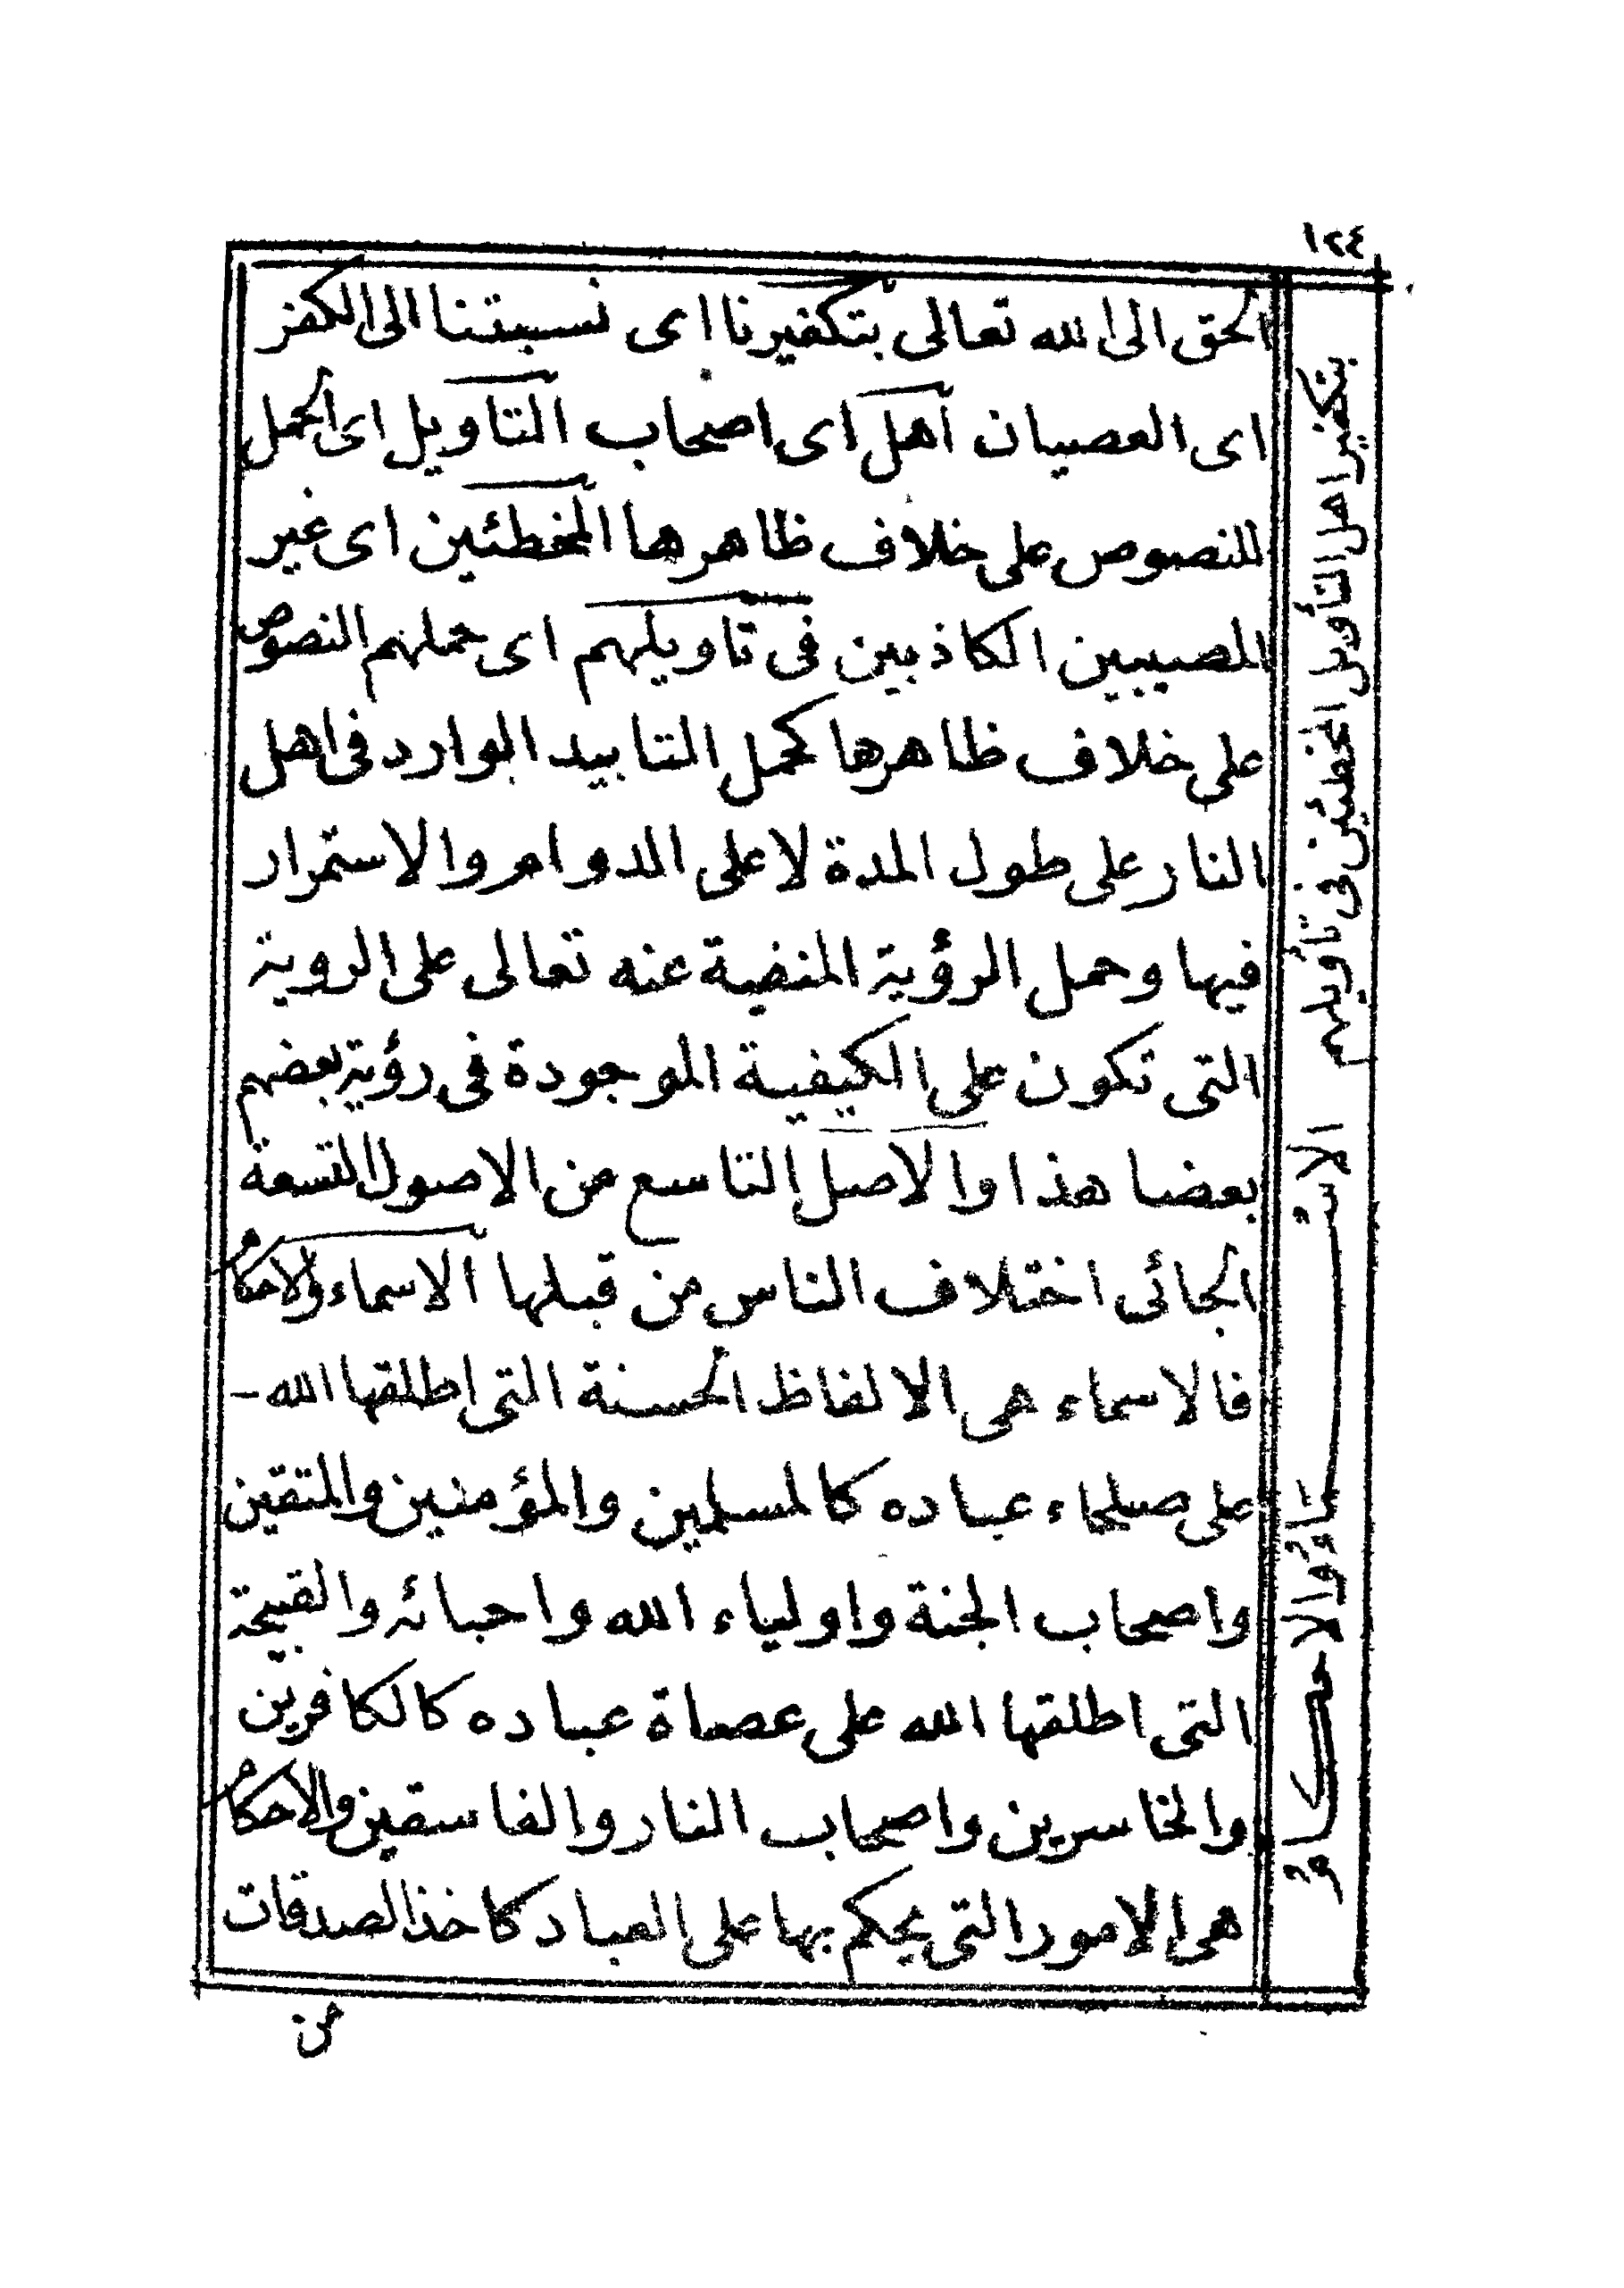 ١٢٤
الحق الى الله تعالى بتكفيرنا اى نسبتنا الى الكفر
اى العصيان اهل اى اصحاب التاويل اى الحمل
للنصوص على خلاف ظاهرها المخطئين اى غير
المصيبين الكاذبين فى تاويلهم اى حملهم النصوص
على خلاف ظاهرها كحمل التابيد الوارد فى اهل
النار على طول المدة لا على الدوام والاستمرار
فيها وحمل الرؤية المنفية عنه تعالى على الروية
التى تكون على الكيفية الموجودة فى رؤية بعضهم
بعضا هذا والاصل التاسع من الاصول التسعة
الجائى اختلاف الناس من قبلها الاسماء والاحكام
فالاسماء هى الالفاظ الحسنة التى اطلقها الله –
على صلحاء عباده كالمسلمين والمؤمنين والمتقين
واصحاب الجنة واولياء الله واحبائه والقبيحة
التى اطلقها الله على عصاة عباده كالكافرين
والخاسرين واصحاب النار والفاسقين والاحكام
هى الامور التى يحكم بها على العباد كاخذ الصدقات
من
بتكفير اهل التأويل المخطئين فى تأويلهم
الاسماء والاحكام